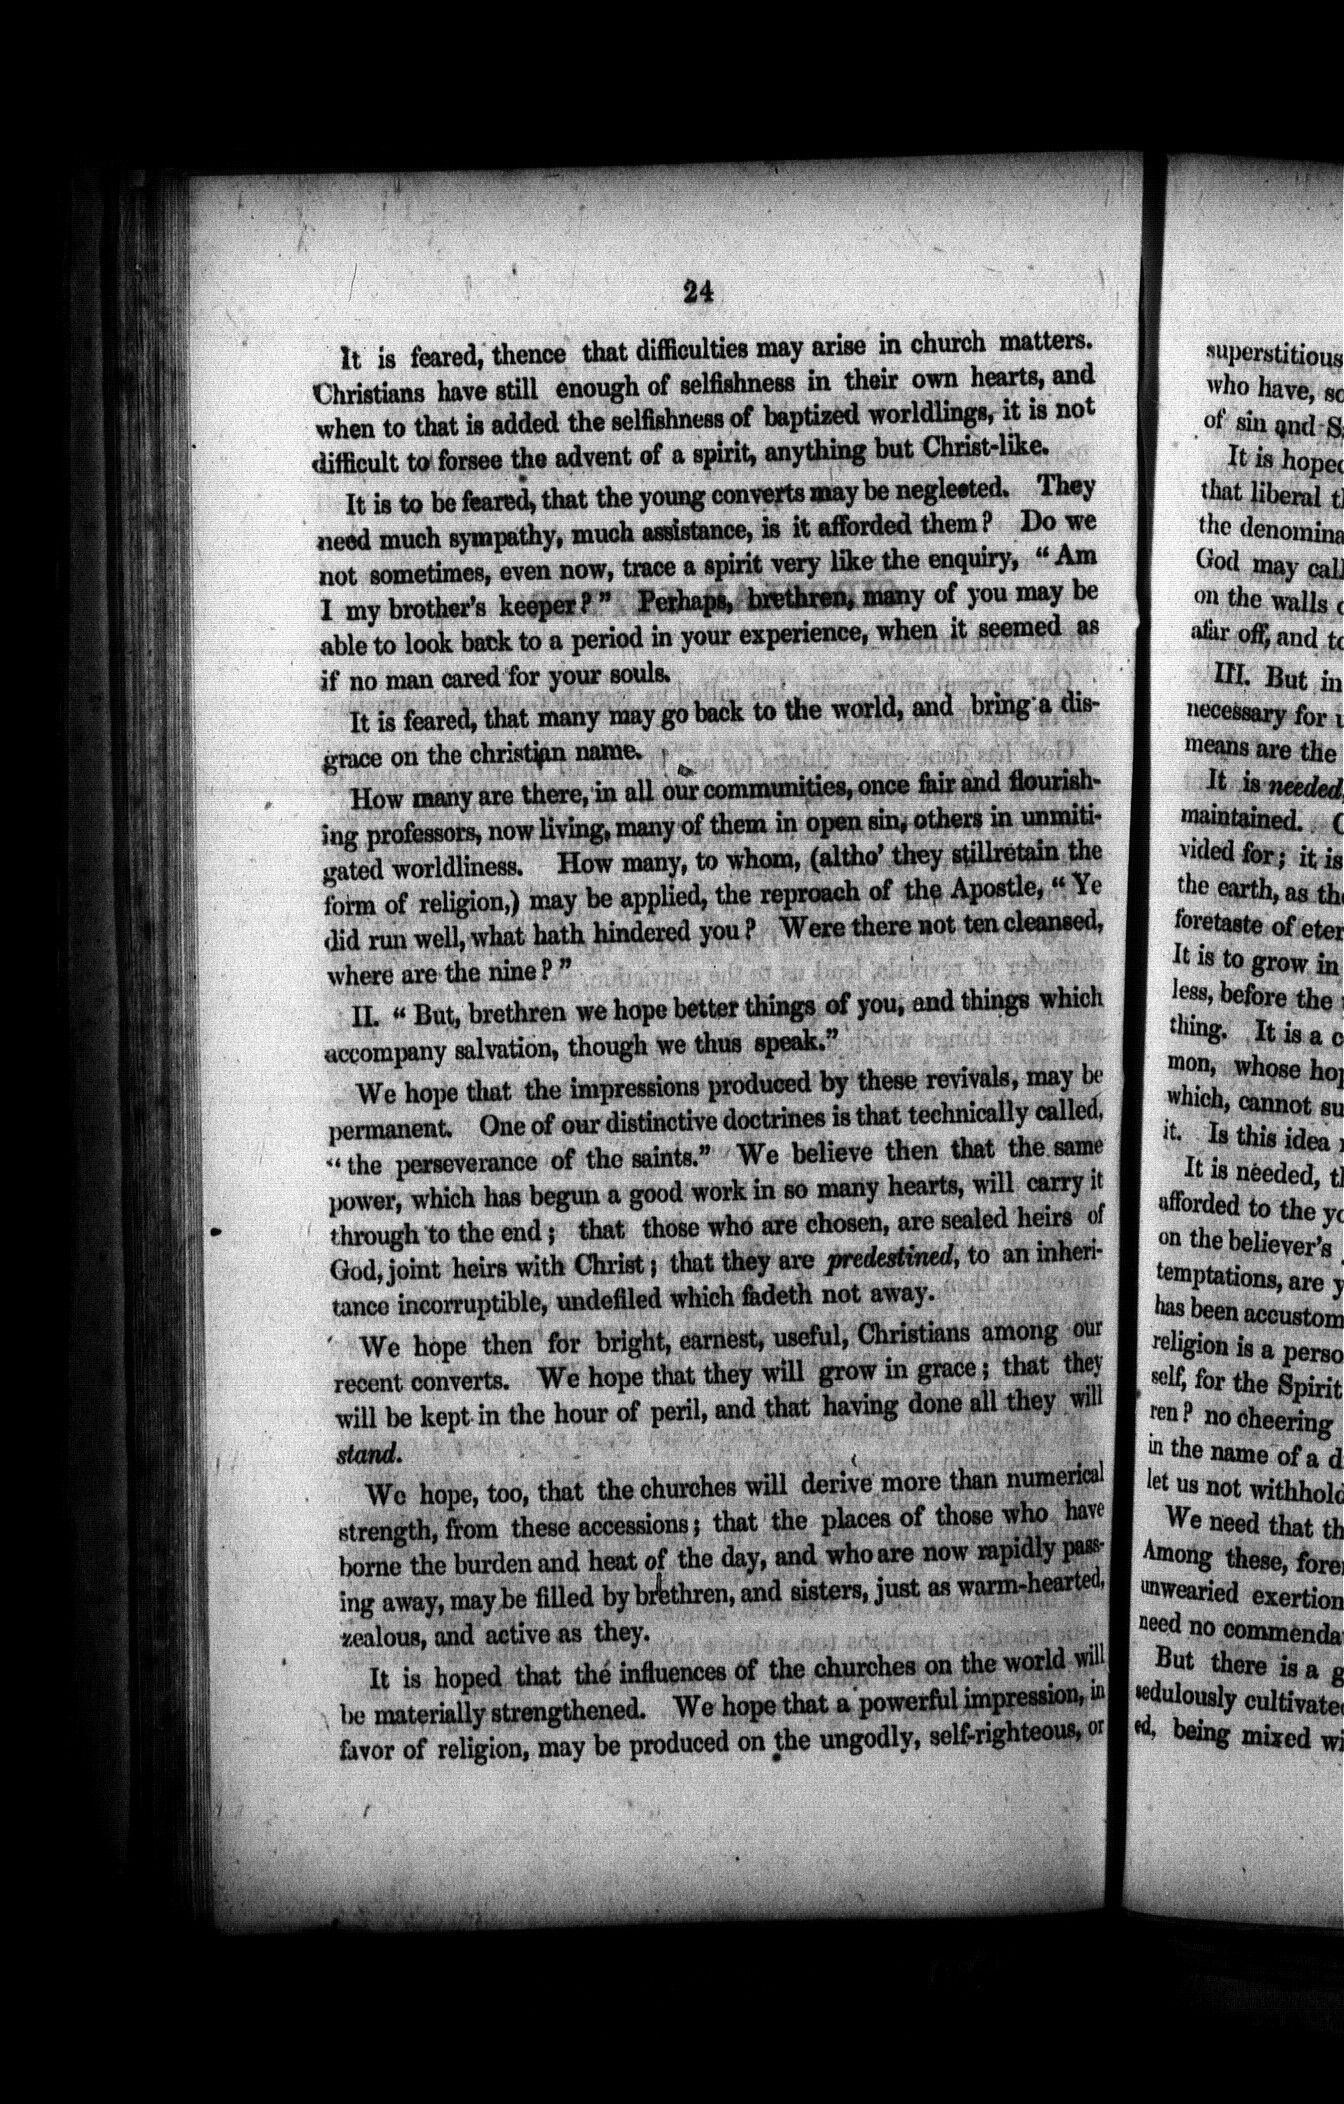 24
It is feared, thence that difficulties may arise in church matters.
Christians have still enough of selfishness in their own hearts, and
when to that is added the selfishness of baptized worldlings, it is not
difficult to forsee the advent of a spirit, anything but Christ-like.
It is to be feared, that the young converts may be neglected. They
need much sympathy, much assistance, is it afforded them? Do we
not sometimes, even now, trace a spirit very like the enquiry, "Am
I my brother's keeper?" Perhaps, brethren, many of you may be
able to look back to a period in your experience, when it seemed as
if no man cared for your souls.
It is feared, that many may go back to the world, and bring a dis-
grace on the christian name.
How many are there, in all our communities, once fair and flourish-
ing professors, now living, many of them in open sin, others in unmiti-
gated worldliness. How many, to whom, (altho' they stillretain the
form of religion,) may be applied, the reproach of the Apostle, "Ye
did run well, what hath hindered you? Were there not ten cleansed,
where are the nine?"
II. "But, brethren we hope better things of you, and things which
accompany salvation, though we thus speak."
We hope that the impressions produced by these revivals, may be
permanent. One of our distinctive doctrines is that technically called,
"the perseverance of the saints." We believe then that the same
power, which has begun a good work in so many hearts, will carry it
through to the end; that those who are chosen, are sealed heirs of
God, joint heirs with Christ; that they are predestined, to an inheri-
tance incorruptible, undefiled which fadeth not away.
We hope then for bright, earnest, useful, Christians among our
recent converts. We hope that they will grow in grace; that they
will be kept in the hour of peril, and that having done all they will
stand.
We hope, too, that the churches will derive more than numerical
strength, from these accessions; that the places of those who have
borne the burden and heat of the day, and who are now rapidly pass-
ing away, may be filled by brethren, and sisters, just as warm-hearted,
zealous, and active as they.
It is hoped that the influences of the churches on the world will
be materially strengthened. We hope that a powerful impression, in
favor of religion, may be produced on the ungodly, self-righteous, or
superstitious
who have,
of sin and
It is
that liberal
the
God may
on the walls
afar off, and
III. But in
necessary for
means are the
It is needed,
maintained.
vided for; it is
the earth, as
foretaste of
It is to grow in
less, before the
thing. It is a
mon, whose
which, cannot
it. Is this idea
It is needed,
afforded to the
on the believer's
temptations, are
has been
religion is a
self, for the Spirit
ren? no cheering
in the name of a
let us not
We need that
Among these,
unwearied
need no
But there is a
sedulously
ed, being mixed